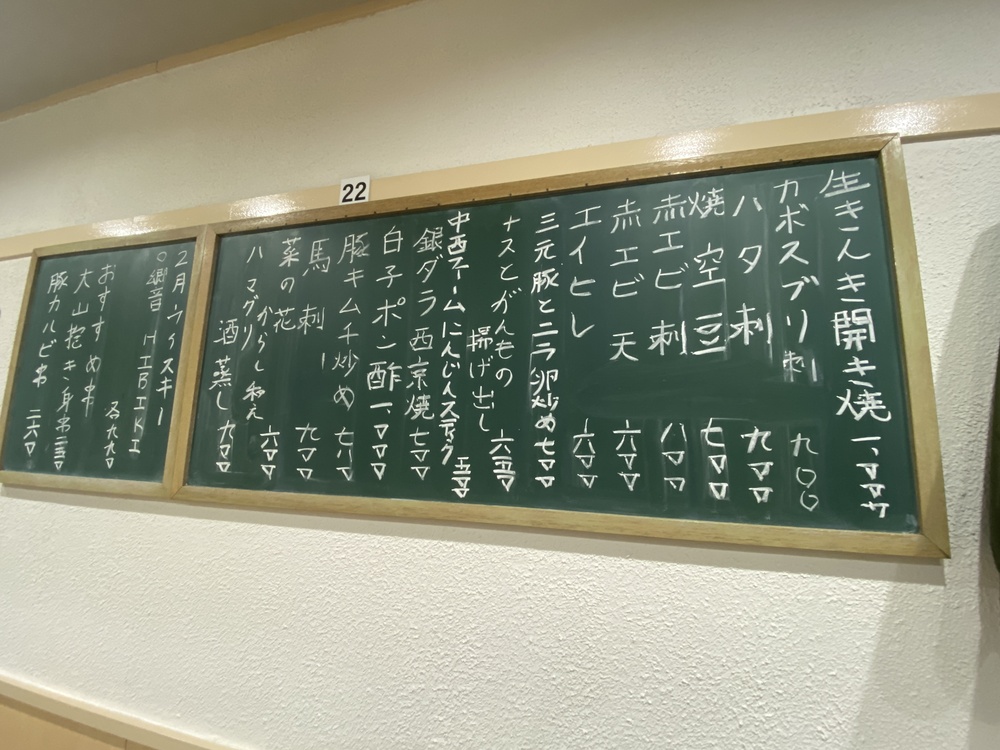 22
生きんき開き焼 一、▽▽▽
カボスブリ刺 九〇〇
ハタ刺 九▽▽
焼空豆 七▽▽
赤エビ刺 八▽▽
赤エビ天 六▽▽
エイヒレ 六▽▽
三元豚とニラ卵炒め 七▽▽
ナスとがんもの
揚げ出し 六五▽
中西ファームにんじんスティック 五▽▽
銀ダラ西京焼 七▽▽
白子ポン酢 一、▽▽▽
豚キムチ炒め 七八▽
馬刺し 九▽▽
菜の花
からし和え 六▽▽
ハマグリ
酒蒸し 九▽▽
2月ウイスキー
○響 HIBIKI
九九▽
おすすめ串
大山抱き身串 三三▽
豚カルビ串 二六▽